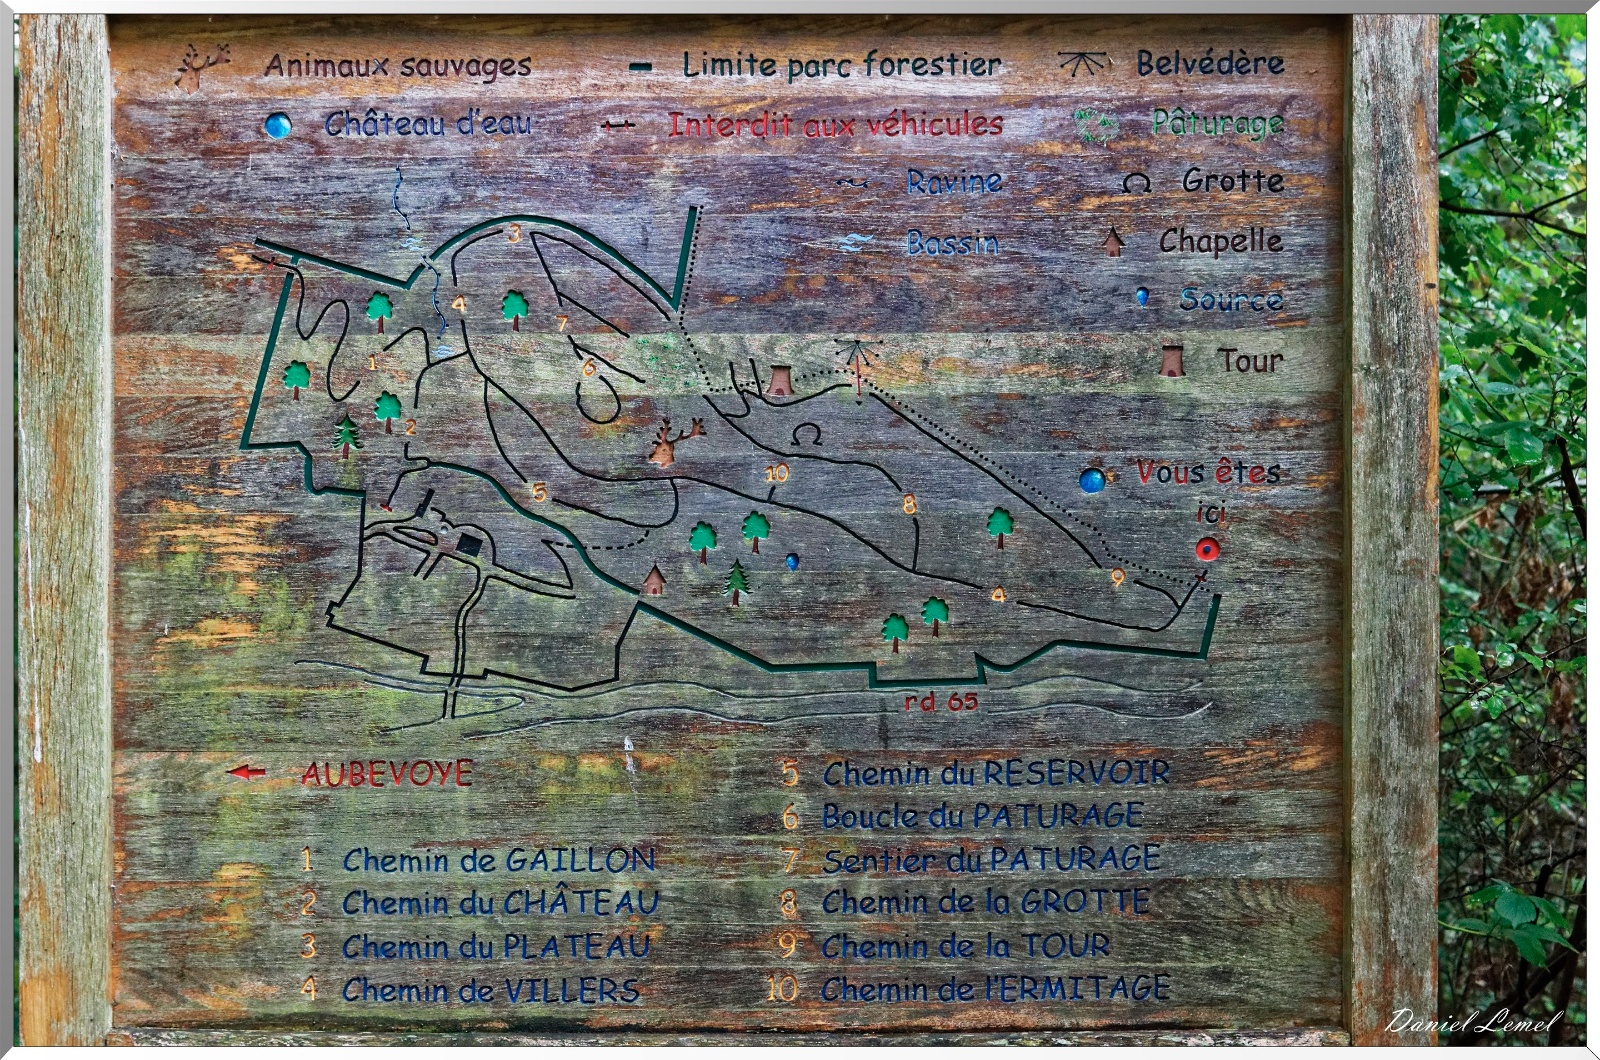 Animaux sauvages
Limite parc forestier
Belvédère
Château d'eau
Interdit aux véhicules
Pâturage
Ravine
Grotte
Bassin
Chapelle
Source
Tour
3
4
7
1
6
2
10
5
8
Vous êtes
ici
9
4
rd 65
AUBEVOYE
1 Chemin de GAILLON
2 Chemin du CHÂTEAU
3 Chemin du PLATEAU
4 Chemin de VILLERS
5 Chemin du RESERVOIR
6 Boucle du PATURAGE
7 Sentier du PATURAGE
8 Chemin de la GROTTE
9 Chemin de la TOUR
10 Chemin de l'ERMITAGE
Daniel Lemel